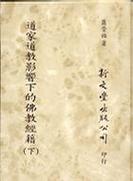 蕭登福 著
道家道教影響下的佛教經籍
(下)
新文豐出版公司 印行